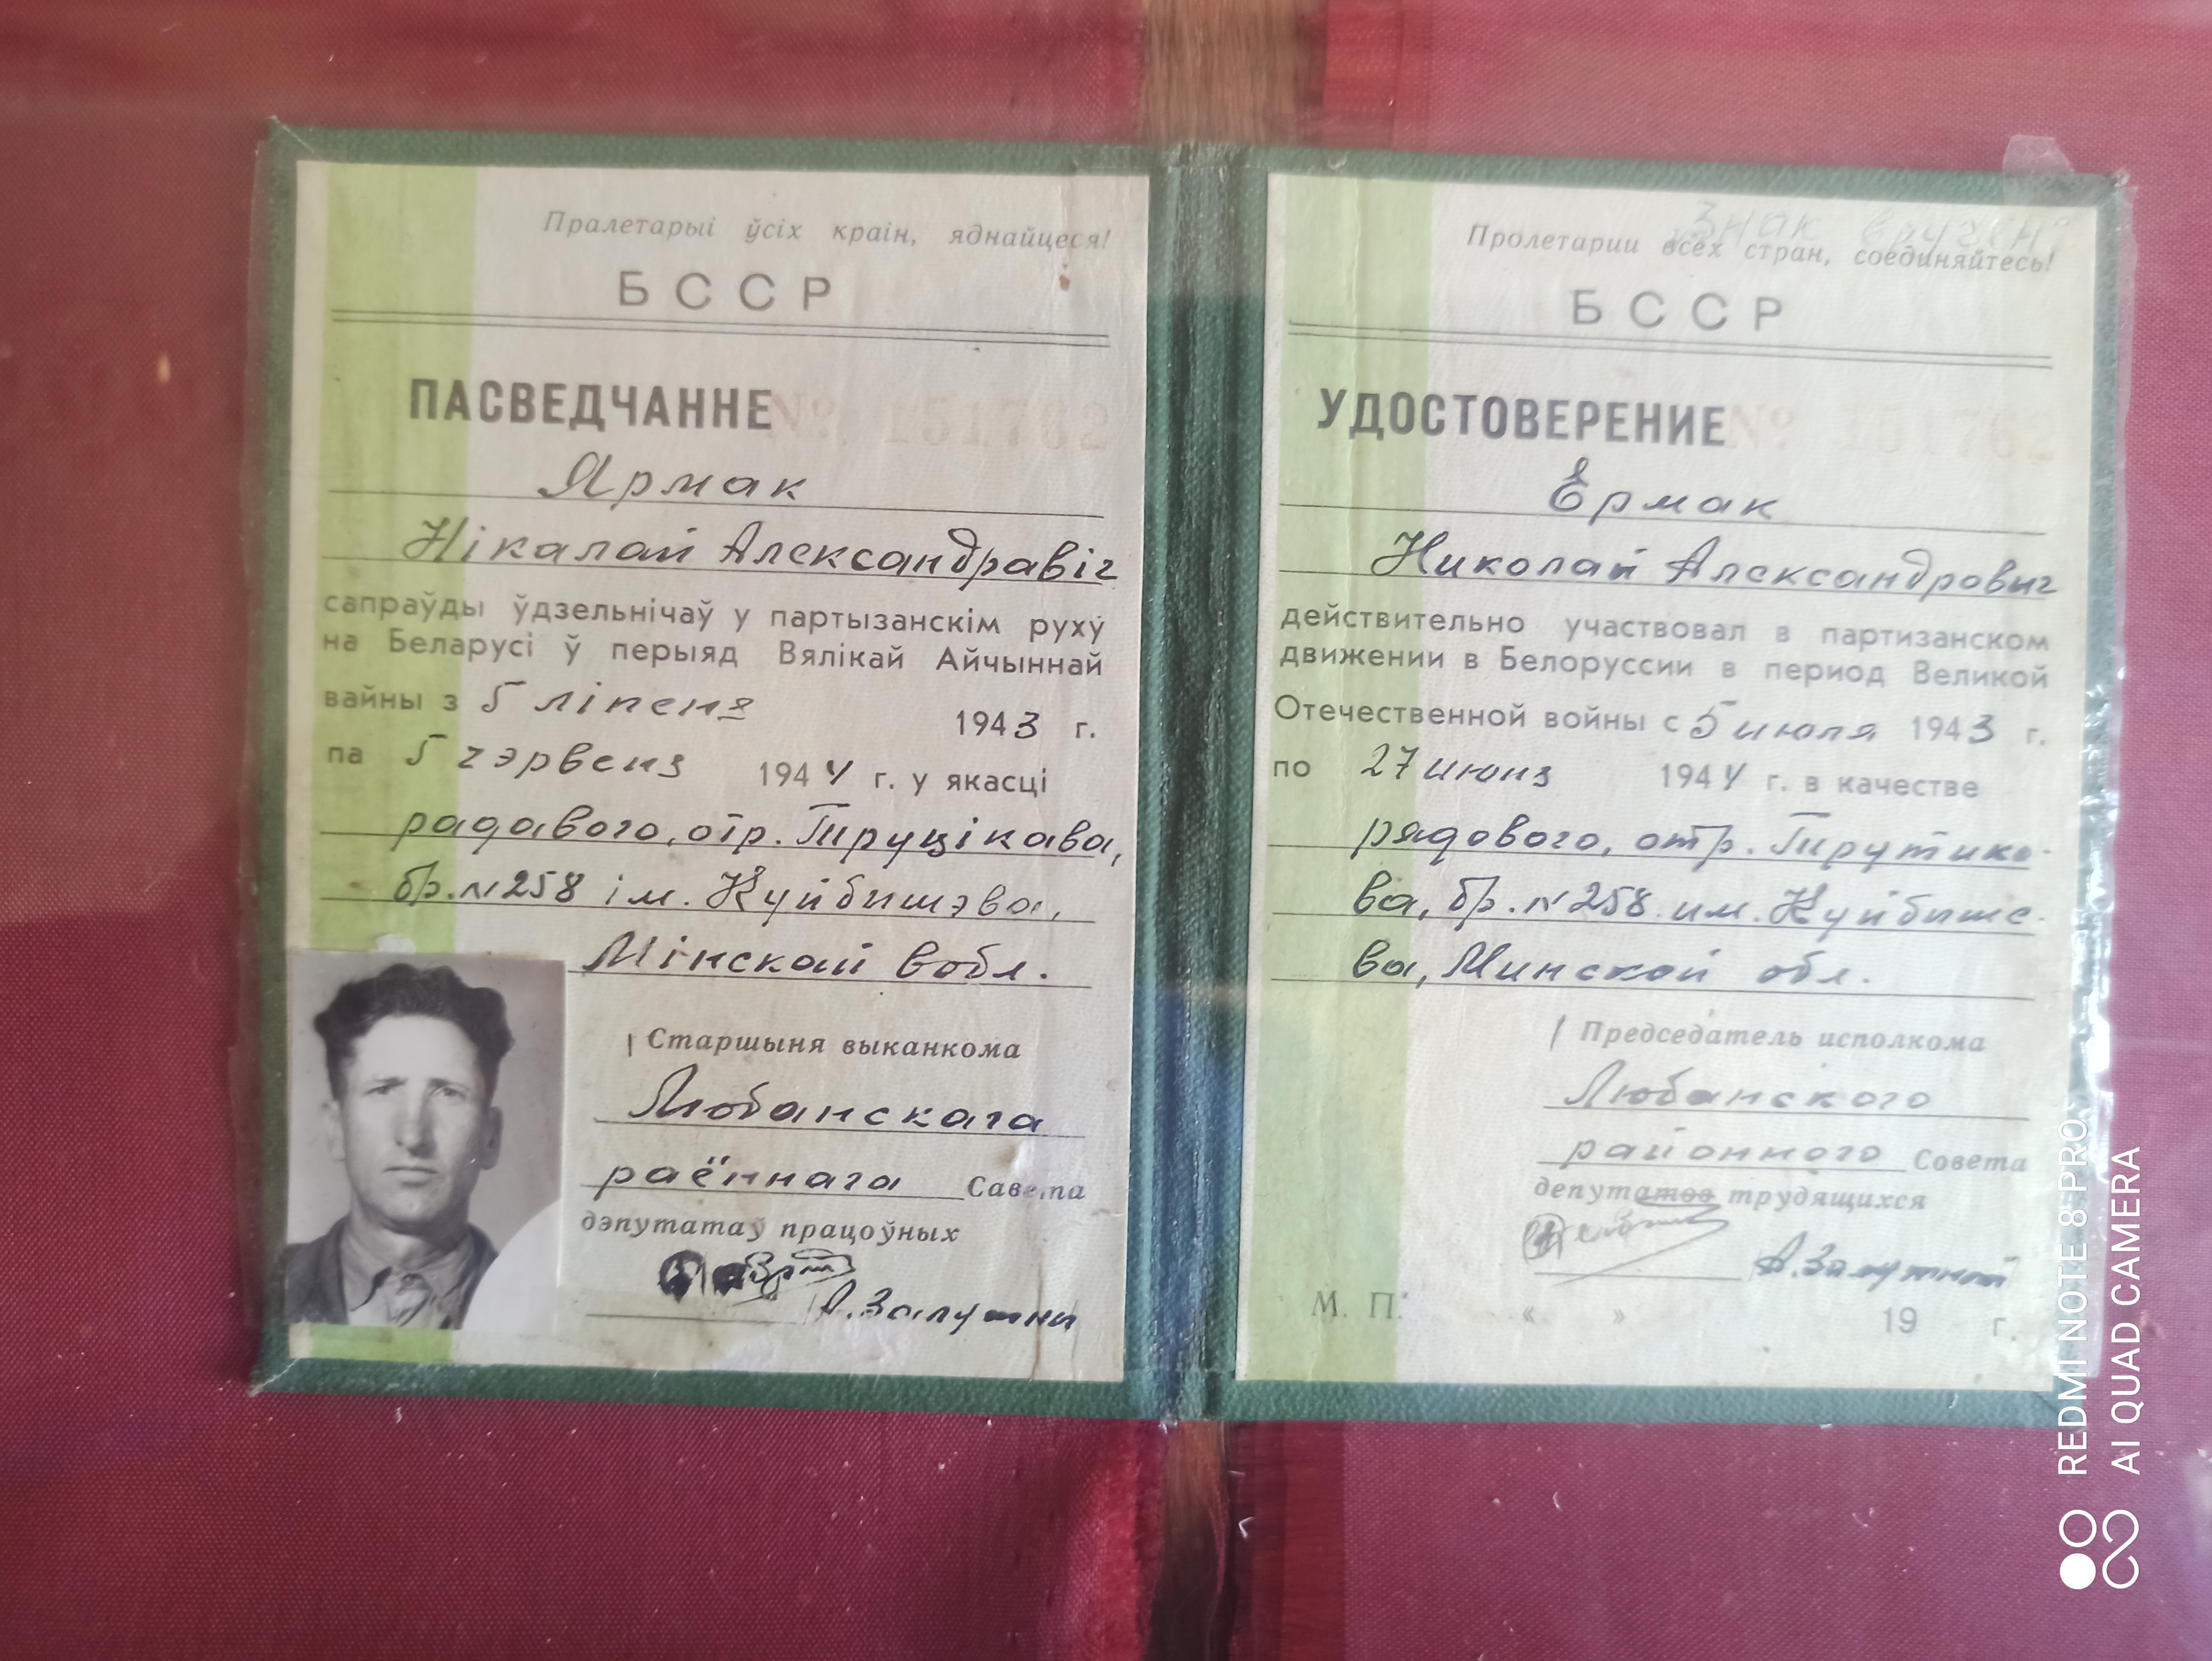 Пралетарыі ўсіх краін, яднайцеся!
БССР
ПАСВЕДЧАННЕ №
Ярмак
Нікалай Александравіч
сапраўды ўдзельнічаў у партызанскім руху
на Беларусі ў перыяд Вялікай Айчыннай
вайны з 5 ліпеня 1943 г.
па 5 чэрвеня 1944 г. у якасці
радавога, отр. Труцікава,
бр. №258 ім. Куйбишэва,
Мінскай вобл.
Старшыня выканкома
Любанскага
раённага Савета
дэпутатаў працоўных
А. Залутни
"Знак вручен"
Пролетарии всех стран, соединяйтесь!
БССР
УДОСТОВЕРЕНИЕ №
Ермак
Николай Александрович
действительно участвовал в партизанском
движении в Белоруссии в период Великой
Отечественной войны с 5 июля 1943 г.
по 27 июня 1944 г. в качестве
рядового, отр. Трутико-
ва, бр. №258 им. Куйбише-
ва, Минской обл.
Председатель исполкома
Любанского
районного Совета
депутатов трудящихся
М. П. « » 19 г.
REDMI NOTE 8 PRO
AI QUAD CAMERA